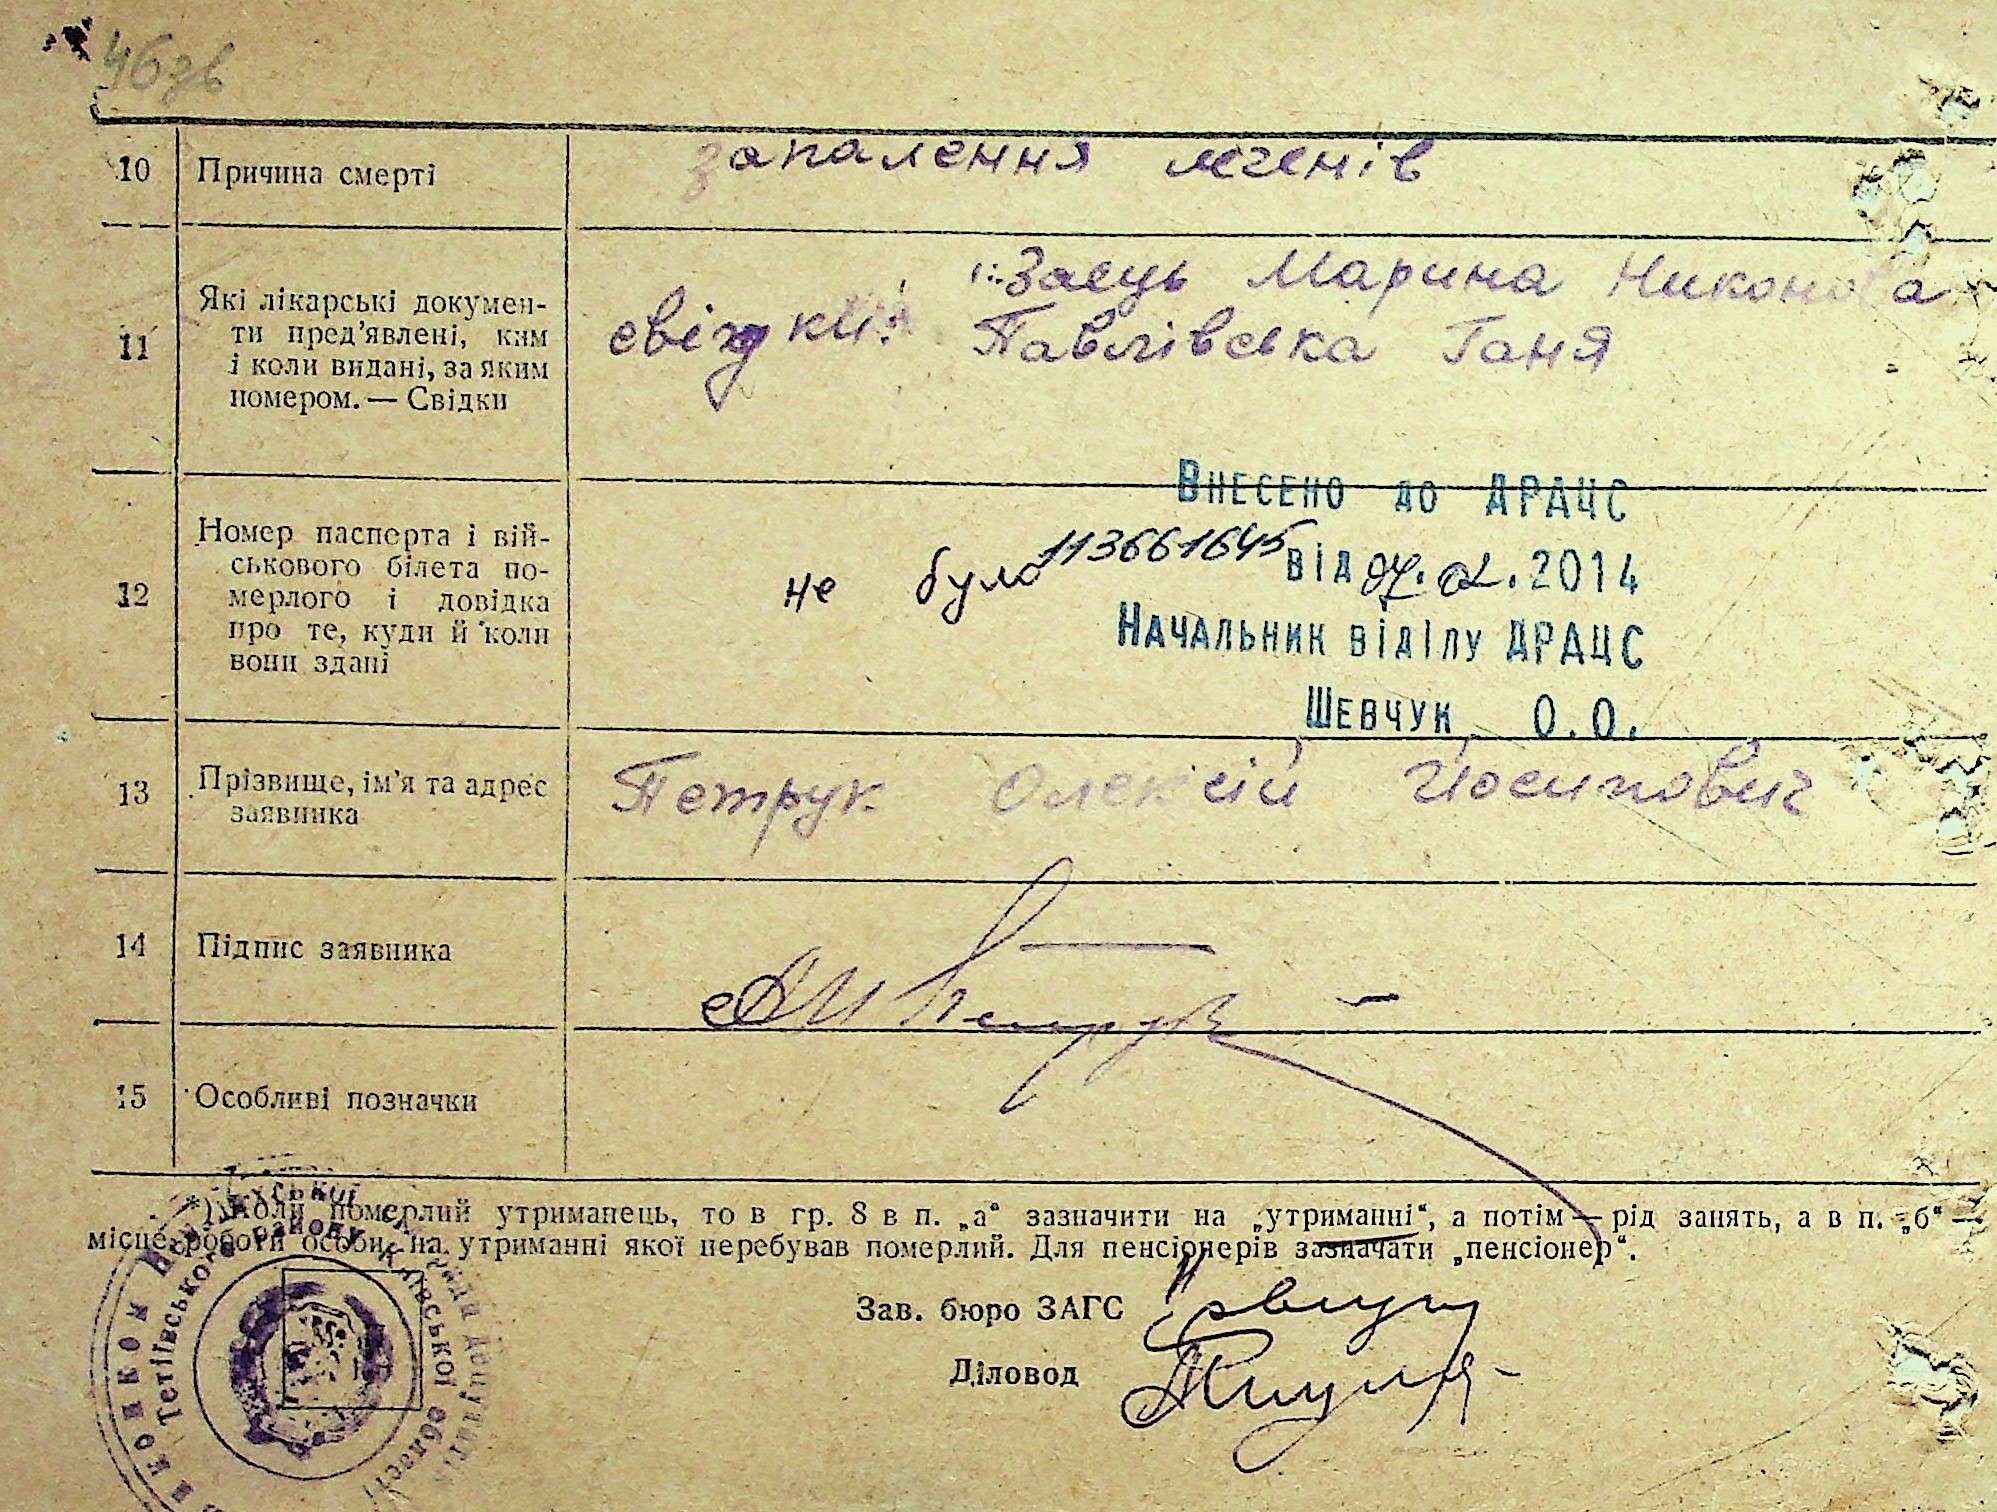 46зв
10 Причина смерті запалення легенів
11 Які лікарські докумен-
ти пред’явлені, ким
і коли видані, за яким
номером. — Свідки
свідки: Заєць Марина Никонова
Павлівська Ганя
12 Номер паспорта і вій-
ськового білета по-
мерлого і довідка
про те, куди й коли
вони здані
не було
Внесено до ДРАЦС
113661645 від .2014
Начальник відділу ДРАЦС
Шевчук О.О.
13 Прізвище, ім’я та адрес
заявника
Петрук Олексій Йосипович
14 Підпис заявника
Петрук
15 Особливі позначки
*) Коли померлий утриманець, то в гр. 8 в п. „а“ зазначити на „утриманні“, а потім — рід занять, а в п. „б“ —
місце роботи особи, на утриманні якої перебував померлий. Для пенсіонерів зазначати „пенсіонер“.
Зав. бюро ЗАГС
Діловод
виконком
Тетіївського району Київської області